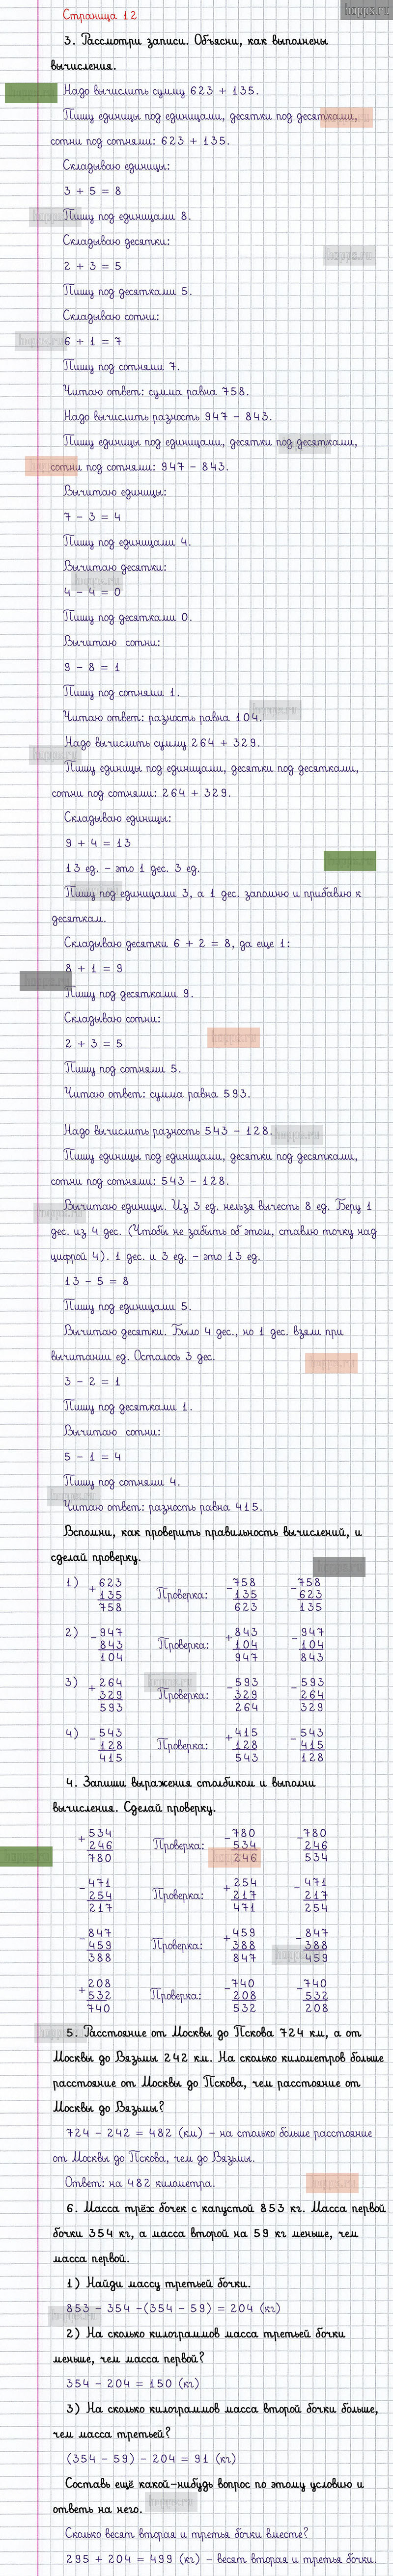 Страница 12
3. Рассмотри записи. Объясни, как выполнены
вычисления.
Надо вычислить сумму 623 + 135.
Пишу единицы под единицами, десятки под десятками,
сотни под сотнями: 623 + 135.
Складываю единицы:
3 + 5 = 8
Пишу под единицами 8.
Складываю десятки:
2 + 3 = 5
Пишу под десятками 5.
Складываю сотни:
6 + 1 = 7
Пишу под сотнями 7.
Читаю ответ: сумма равна 758.
Надо вычислить разность 947 - 843.
Пишу единицы под единицами, десятки под десятками,
сотни под сотнями: 947 - 843.
Вычитаю единицы:
7 - 3 = 4
Пишу под единицами 4.
Вычитаю десятки:
4 - 4 = 0
Пишу под десятками 0.
Вычитаю сотни:
9 - 8 = 1
Пишу под сотнями 1.
Читаю ответ: разность равна 104.
Надо вычислить сумму 264 + 329.
Пишу единицы под единицами, десятки под десятками,
сотни под сотнями: 264 + 329.
Складываю единицы:
9 + 4 = 13
13 ед. - это 1 дес. 3 ед.
Пишу под единицами 3, а 1 дес. запомню и прибавлю к
десяткам.
Складываю десятки 6 + 2 = 8, да еще 1:
8 + 1 = 9
Пишу под десятками 9.
Складываю сотни:
2 + 3 = 5
Пишу под сотнями 5.
Читаю ответ: сумма равна 593.
Надо вычислить разность 543 - 128.
Пишу единицы под единицами, десятки под десятками,
сотни под сотнями: 543 - 128.
Вычитаю единицы. Из 3 ед. нельзя вычесть 8 ед. Беру 1
дес. из 4 дес. (Чтобы не забыть об этом, ставлю точку над
цифрой 4). 1 дес. и 3 ед. - это 13 ед.
13 - 5 = 8
Пишу под единицами 5.
Вычитаю десятки. Было 4 дес., но 1 дес. взяли при
вычитании ед. Осталось 3 дес.
3 - 2 = 1
Пишу под десятками 1.
Вычитаю сотни:
5 - 1 = 4
Пишу под сотнями 4.
Читаю ответ: разность равна 415.
Вспомни, как проверить правильность вычислений, и
сделай проверку.
1) + 623 Проверка: - 758 - 758
135 135 623
758 623 135
2) - 947 Проверка: + 843 - 947
843 104 104
104 947 843
3) + 264 Проверка: - 593 - 593
329 329 264
593 264 329
4) - 543 Проверка: + 415 - 543
128 128 415
415 543 128
4. Запиши выражения столбиком и выполни
вычисления. Сделай проверку.
+ 534 Проверка: - 780 - 780
246 534 246
780 246 534
- 471 Проверка: + 254 - 471
254 217 217
217 471 254
- 847 Проверка: + 459 - 847
459 388 388
388 847 459
+ 208 Проверка: - 740 - 740
532 208 532
740 532 208
5. Расстояние от Москвы до Пскова 724 км, а от
Москвы до Вязьмы 242 км. На сколько километров больше
расстояние от Москвы до Пскова, чем расстояние от
Москвы до Вязьмы?
724 - 242 = 482 (км) - на столько больше расстояние
от Москвы до Пскова, чем до Вязьмы.
Ответ: на 482 километра.
6. Масса трёх бочек с капустой 853 кг. Масса первой
бочки 354 кг, а масса второй на 59 кг меньше, чем
масса первой.
1) Найди массу третьей бочки.
853 - 354 -(354 - 59) = 204 (кг)
2) На сколько килограммов масса третьей бочки
меньше, чем масса первой?
354 - 204 = 150 (кг)
3) На сколько килограммов масса второй бочки больше,
чем масса третьей?
(354 - 59) - 204 = 91 (кг)
Составь ещё какой-нибудь вопрос по этому условию и
ответь на него.
Сколько весят вторая и третья бочки вместе?
295 + 204 = 499 (кг) - весят вторая и третья бочки.